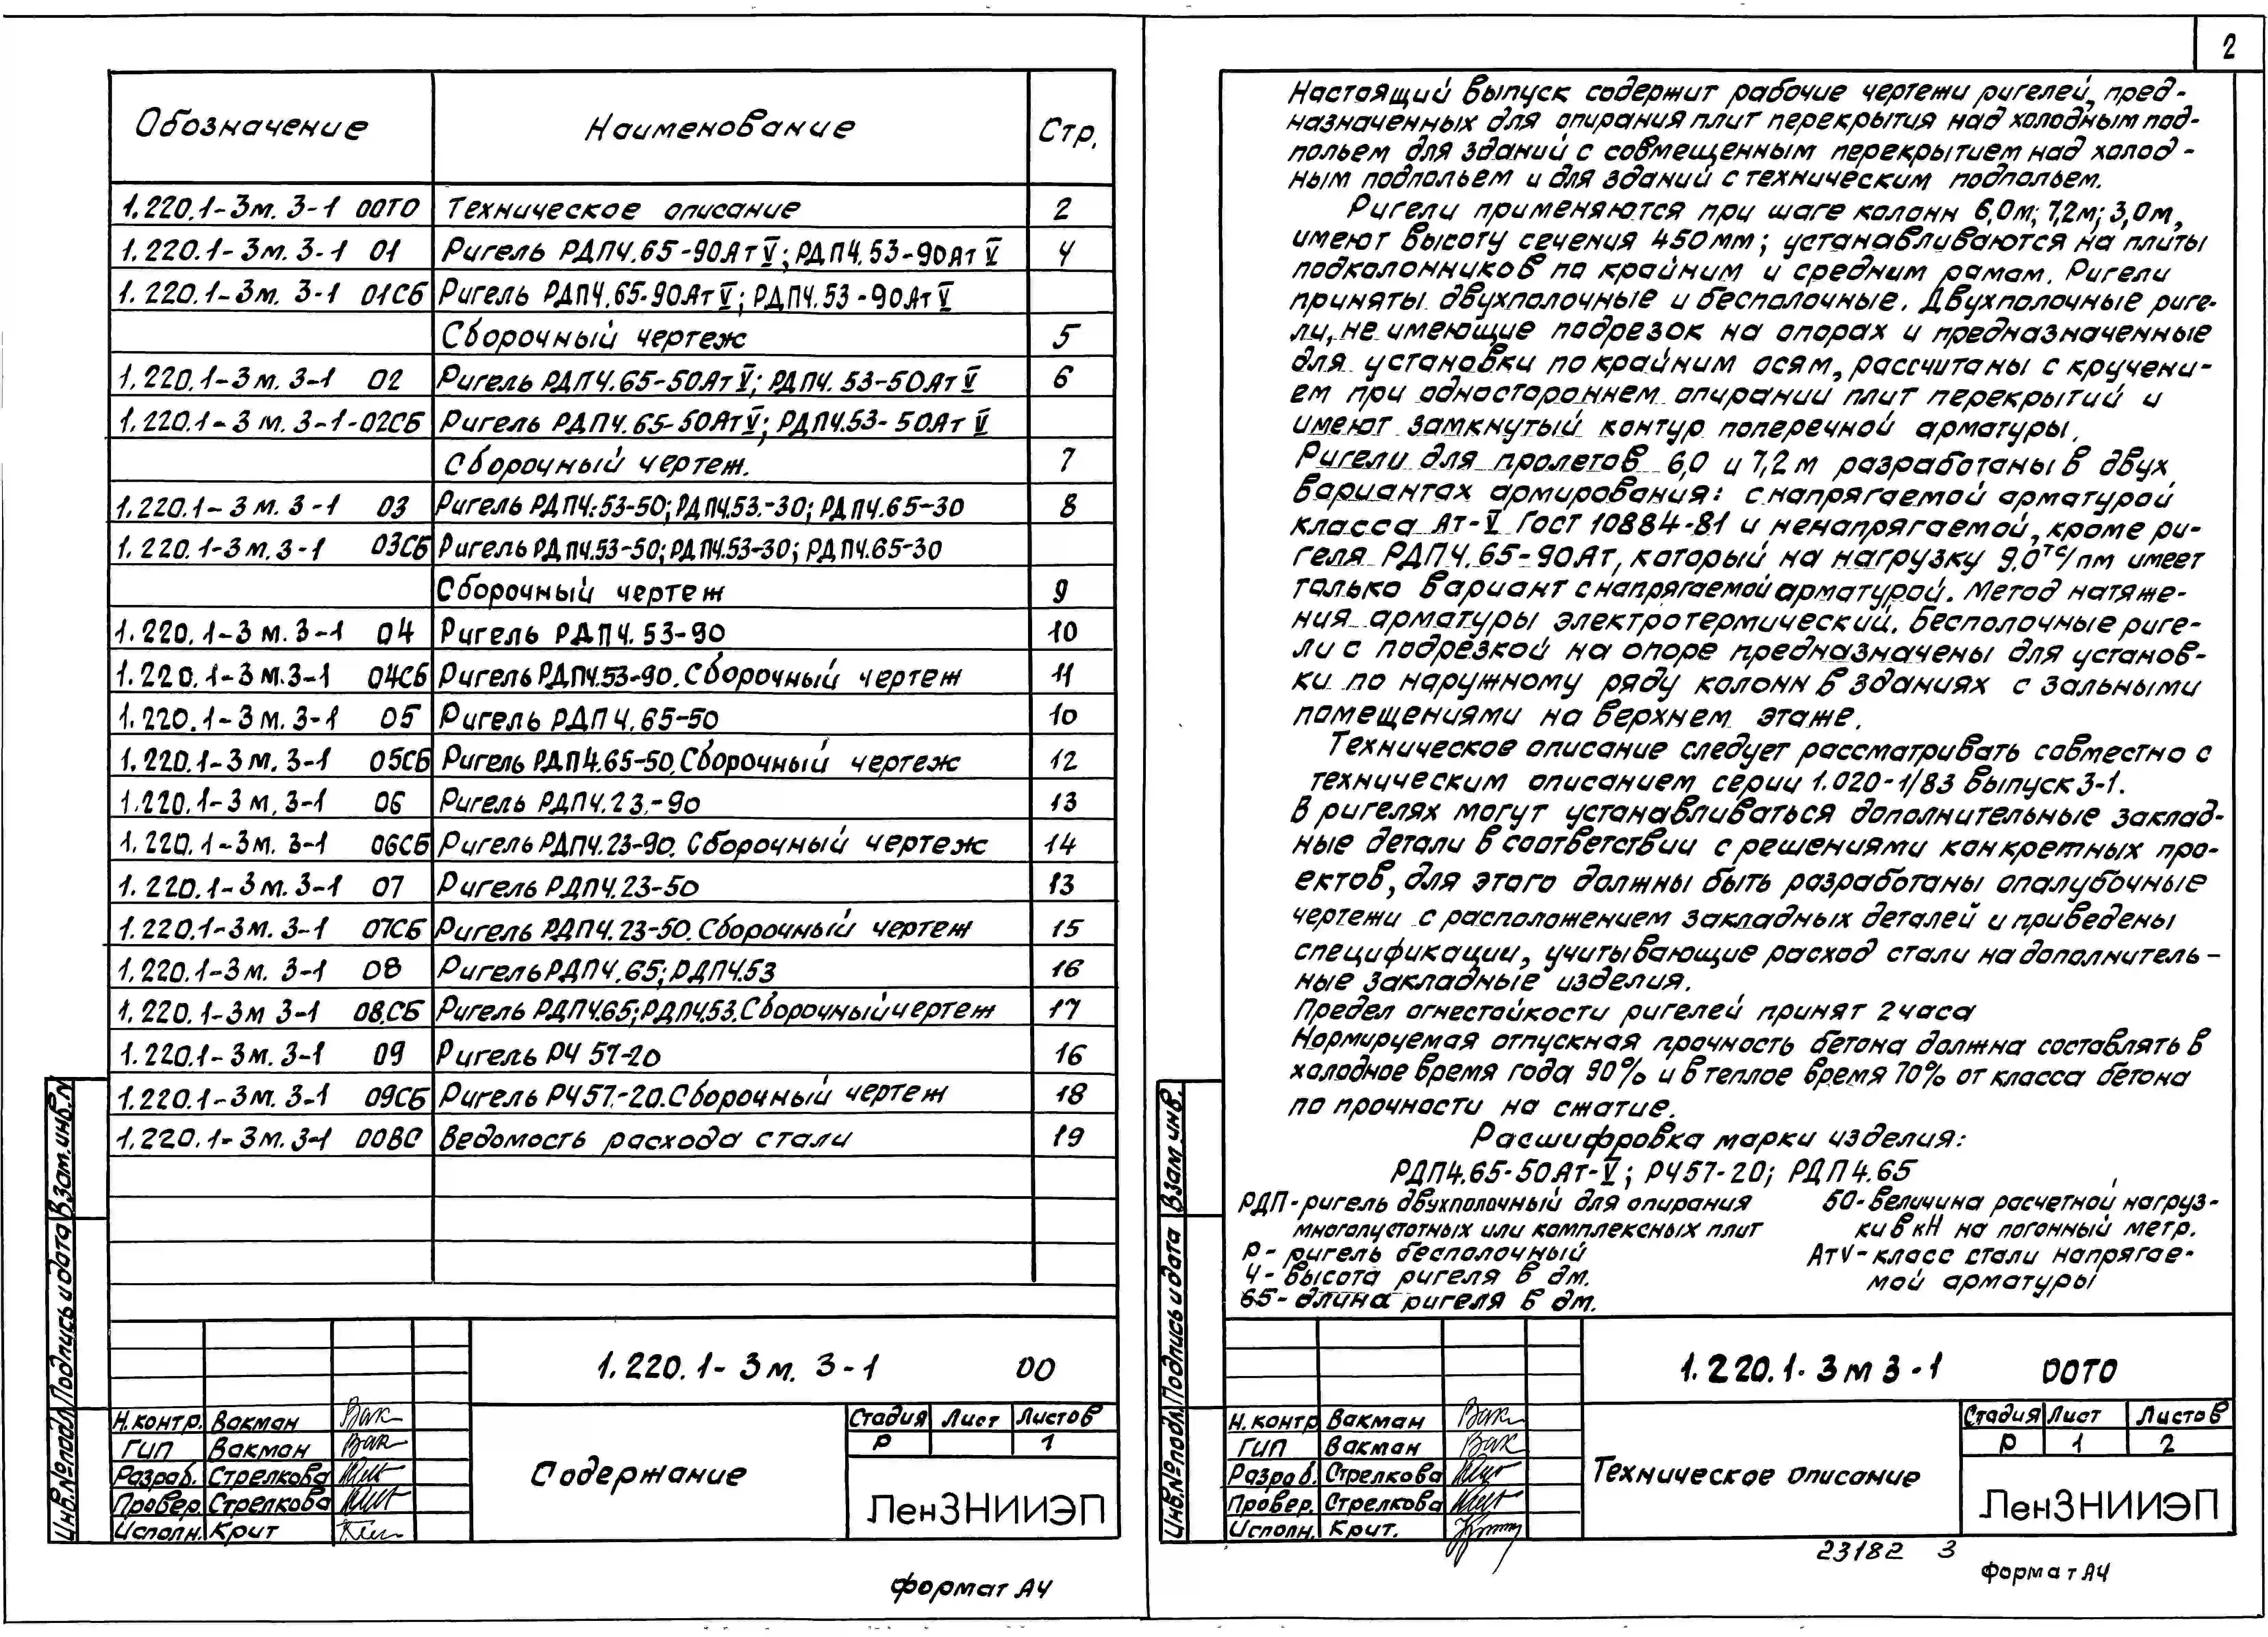 Обозначение Наименование Стр.
1.220.1-3м. 3-1 00ТО Техническое описание 2
1.220.1-3м. 3-1 01 Ригель РДП4.65-90АтV; РДП4.53-90АтV 4
1.220.1-3м. 3-1 01СБ Ригель РДП4.65-90АтV; РДП4.53-90АтV
Сборочный чертеж 5
1.220.1-3м. 3-1 02 Ригель РДП4.65-50АтV; РДП4.53-50АтV 6
1.220.1-3м. 3-1-02СБ Ригель РДП4.65-50АтV; РДП4.53-50АтV
Сборочный чертеж. 7
1.220.1-3м. 3-1 03 Ригель РДП4.53-50; РДП4.53.-30; РДП4.65-30 8
1.220.1-3м.3-1 03СБ Ригель РДП4.53-50; РДП4.53-30; РДП4.65-30
Сборочный чертеж 9
1.220.1-3м.3-1 04 Ригель РДП4.53-90 10
1.220.1-3м.3-1 04СБ Ригель РДП4.53-90. Сборочный чертеж 11
1.220.1-3м.3-1 05 Ригель РДП4.65-50 10
1.220.1-3м.3-1 05СБ Ригель РДП4.65-50. Сборочный чертеж 12
1.220.1-3м.3-1 06 Ригель РДП4.23.-90 13
1.220.1-3м. 3-1 06СБ Ригель РДП4.23-90. Сборочный чертеж 14
1.220.1-3м.3-1 07 Ригель РДП4.23-50 13
1.220.1-3м. 3-1 07СБ Ригель РДП4.23-50. Сборочный чертеж 15
1.220.1-3м. 3-1 08 Ригель РДП4.65; РДП4.53 16
1.220.1-3м 3-1 08.СБ Ригель РДП4.65; РДП4.53. Сборочный чертеж 17
1.220.1-3м. 3-1 09 Ригель Р4 57-20 16
1.220.1-3м. 3-1 09СБ Ригель Р4 57.-20. Сборочный чертеж 18
1.220.1-3м. 3-1 00ВС Ведомость расхода стали 19
Инв.№подл. Подпись и дата Взам.инв.N
1.220.1-3м. 3-1 00
Н.контр. Вакман
ГИП Вакман
Разраб. Стрелкова
Провер. Стрелкова
Исполн. Крит
Содержание
Стадия Лист Листов
Р 1
ЛенЗНИИЭП
формат А4
2
Настоящий выпуск содержит рабочие чертежи ригелей, пред-
назначенных для опирания плит перекрытия над холодным под-
польем для зданий с совмещенным перекрытием над холод-
ным подпольем и для зданий с техническим подпольем.
Ригели применяются при шаге колонн 6,0м; 7,2м; 3,0м,
имеют высоту сечения 450мм; устанавливаются на плиты
подколонников по крайним и средним рамам. Ригели
приняты двухполочные и бесполочные. Двухполочные риге-
ли, не имеющие подрезок на опорах и предназначенные
для установки по крайним осям, рассчитаны с кручени-
ем при одностороннем опирании плит перекрытий и
имеют замкнутый контур поперечной арматуры.
Ригели для пролетов 6,0 и 7,2м разработаны в двух
вариантах армирования: с напрягаемой арматурой
класса Ат-V Гост 10884-81 и ненапрягаемой, кроме ри-
геля РДП4.65-90Ат, который на нагрузку 9.0тс/пм имеет
только вариант с напрягаемой арматурой. Метод натяже-
ния арматуры электротермический. Бесполочные риге-
ли с подрезкой на опоре предназначены для установ-
ки по наружному ряду колонн в зданиях с зальными
помещениями на верхнем этаже.
Техническое описание следует рассматривать совместно с
техническим описанием серии 1.020-1/83 выпуск 3-1.
В ригелях могут устанавливаться дополнительные заклад-
ные детали в соответствии с решениями конкретных про-
ектов, для этого должны быть разработаны опалубочные
чертежи с расположением закладных деталей и приведены
спецификации, учитывающие расход стали на дополнитель-
ные закладные изделия.
Предел огнестойкости ригелей принят 2 часа
Нормируемая отпускная прочность бетона должна составлять в
холодное время года 90% и в теплое время 70% от класса бетона
по прочности на сжатие.
Расшифровка марки изделия:
РДП4.65-50Ат-V; Р457-20; РДП4.65
РДП-ригель двухполочный для опирания
многопустотных или комплексных плит
Р- ригель бесполочный
4- высота ригеля в дм.
65- длина ригеля в дм.
50- величина расчетной нагруз-
ки в кН на погонный метр.
АтV- класс стали напрягае-
мой арматуры
Инв.№подл. Подпись и дата Взам.инв.
1.220.1-3м 3-1 00ТО
Н.контр Вакман
ГИП Вакман
Разраб. Стрелкова
Провер. Стрелкова
Исполн. Крит.
Техническое описание
Стадия Лист Листов
Р 1 2
ЛенЗНИИЭП
23182 3
формат А4